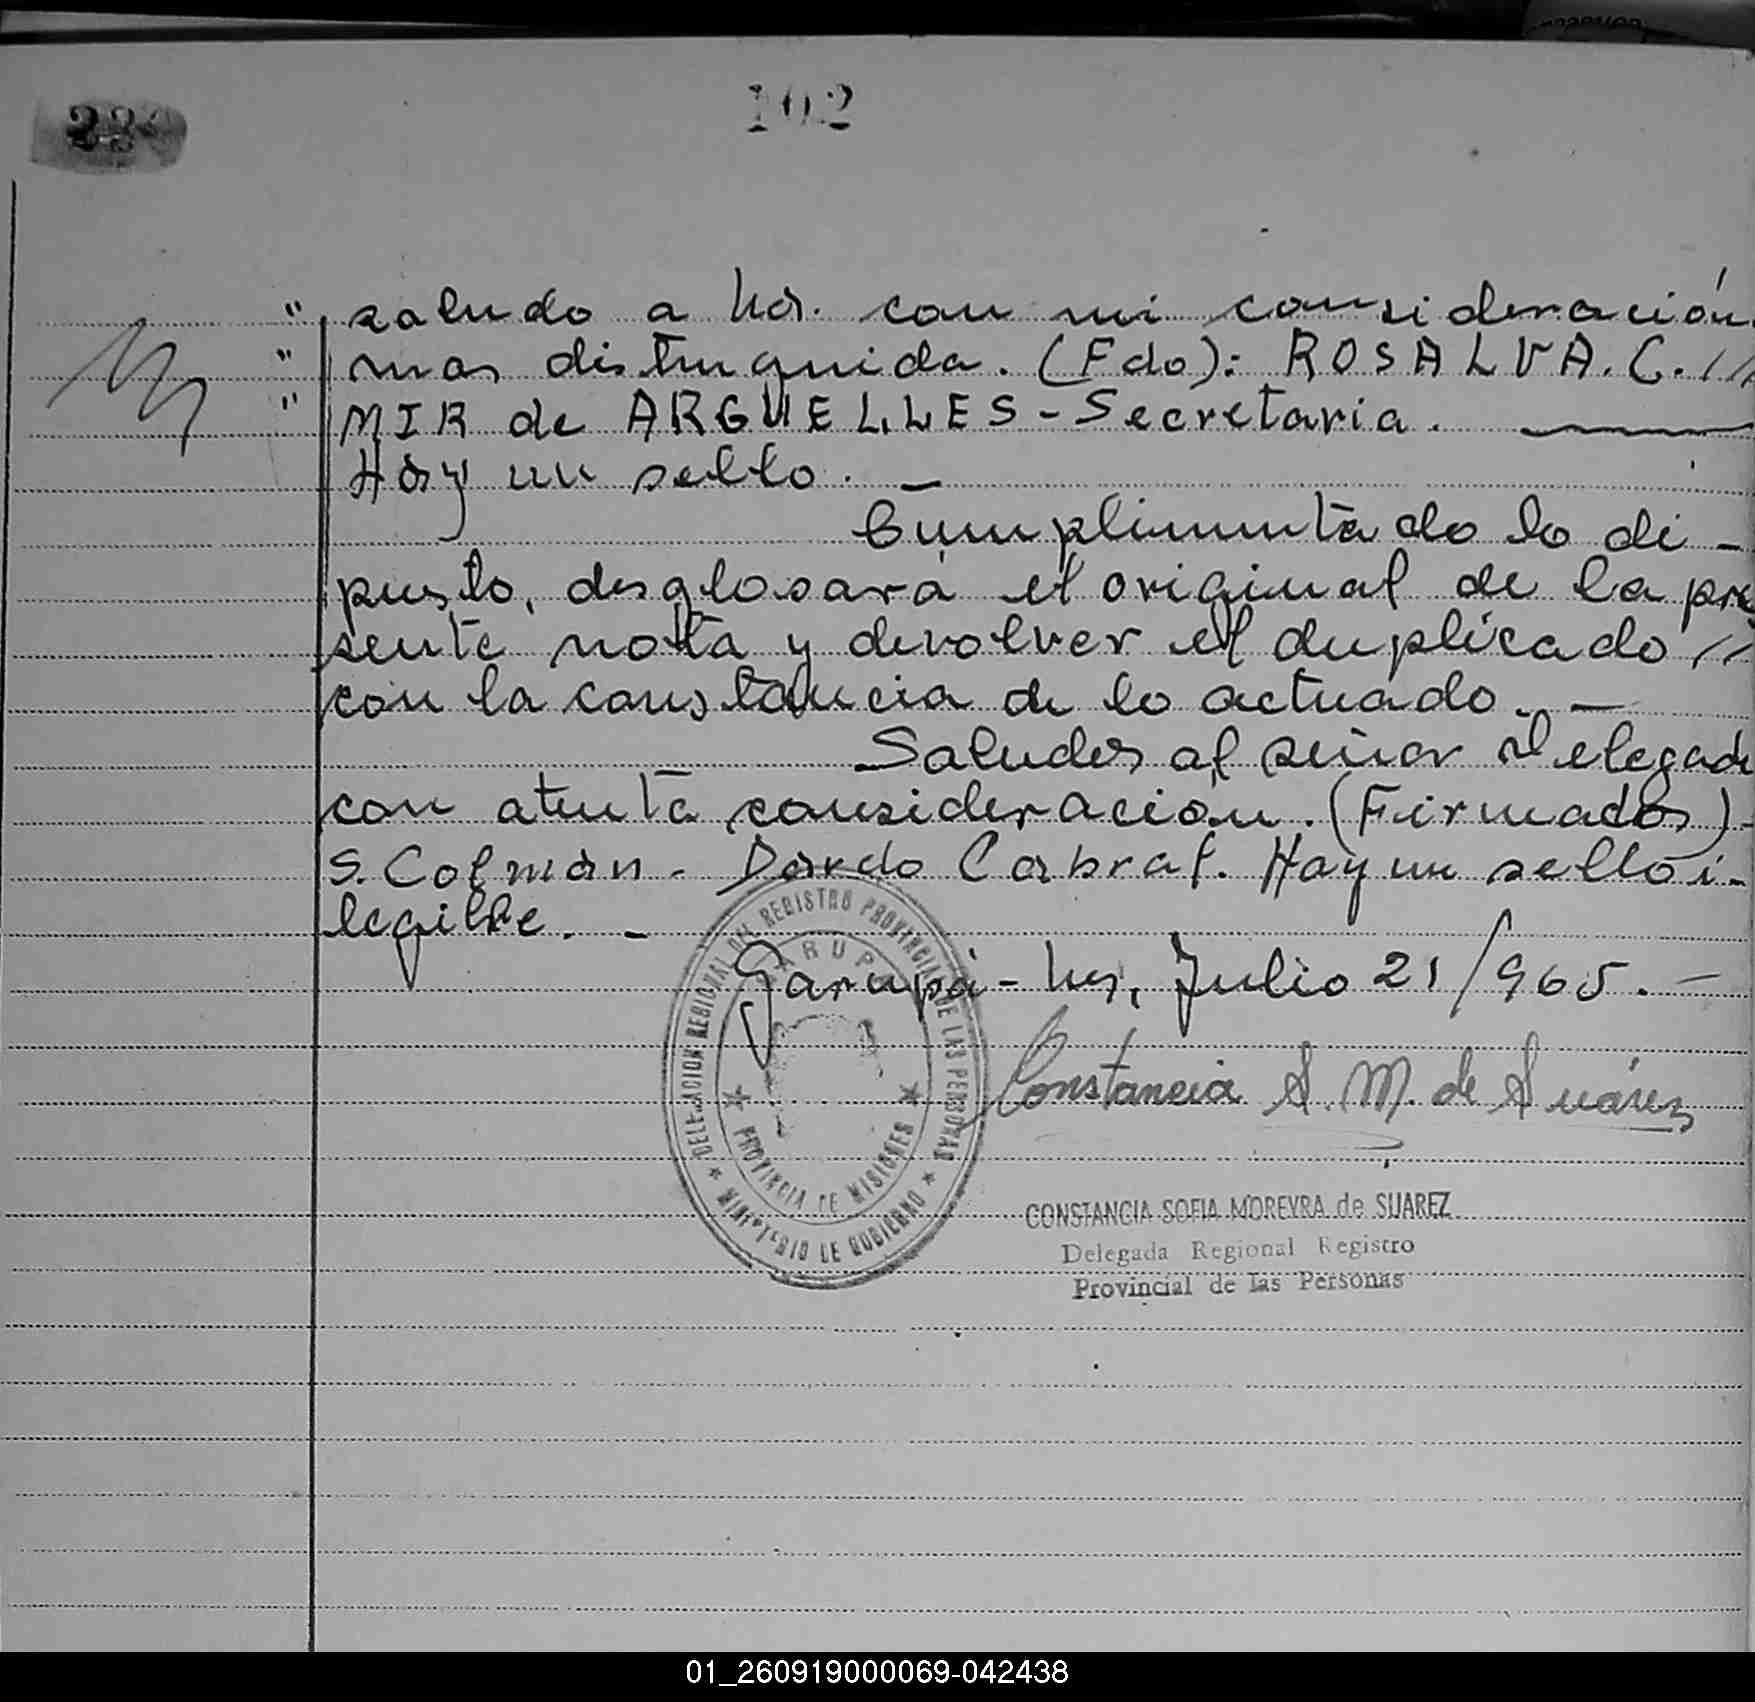 102
" saludo a Ud. con mi consideración
" mas distinguida. (Fdo): ROSALVA. C. //
" MIR de ARGUELLES - Secretaria.
Hay un sello. -
Cumplimentado lo di -
puesto, desglosará el original de la pre
sente nota y devolver el duplicado //
con la constancia de lo actuado. -
Saludos al señor Delegado
con atenta consideración. (Firmados) -
S. Colmán - Dardo Cabral. Hay un sello i-
legible. -
Garupá - Ms, Julio 21/965. -
Constancia S. M. de Suárez
DELEGACION REGIONAL DEL REGISTRO PROVINCIAL DE LAS PERSONAS
GARUPA
PROVINCIA DE MISIONES
MINISTERIO DE GOBIERNO
CONSTANCIA SOFIA MOREYRA de SUAREZ
Delegada Regional Registro
Provincial de las Personas
01_260919000069-042438